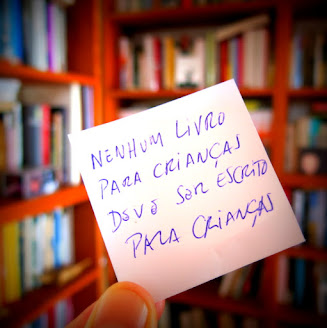 NENHUM LIVRO
PARA CRIANÇAS
DEVE SER ESCRITO
PARA CRIANÇAS